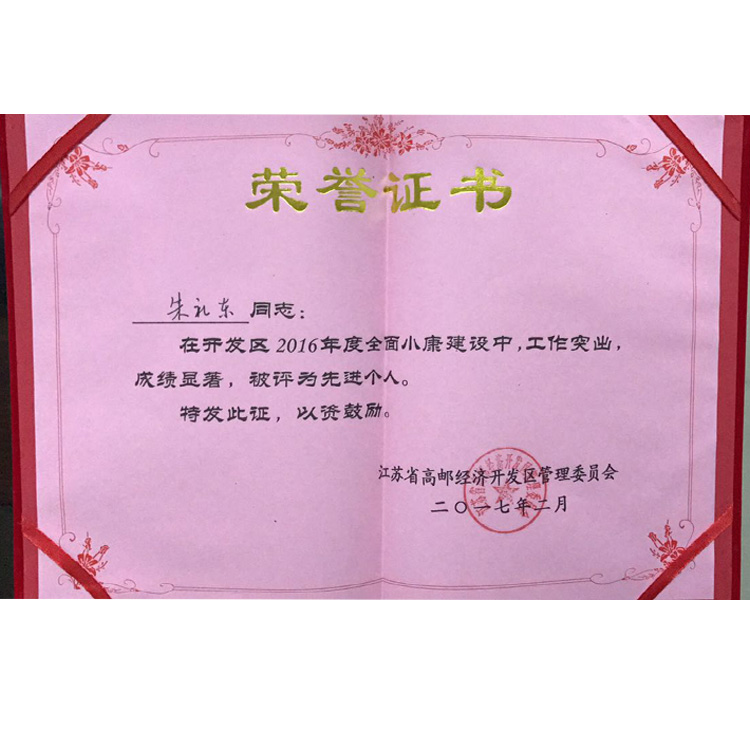 荣誉证书
朱礼东 同志：
在开发区2016年度全面小康建设中，工作突出，
成绩显著，被评为先进个人。
特发此证，以资鼓励。
江苏省高邮经济开发区管理委员会
二〇一七年二月